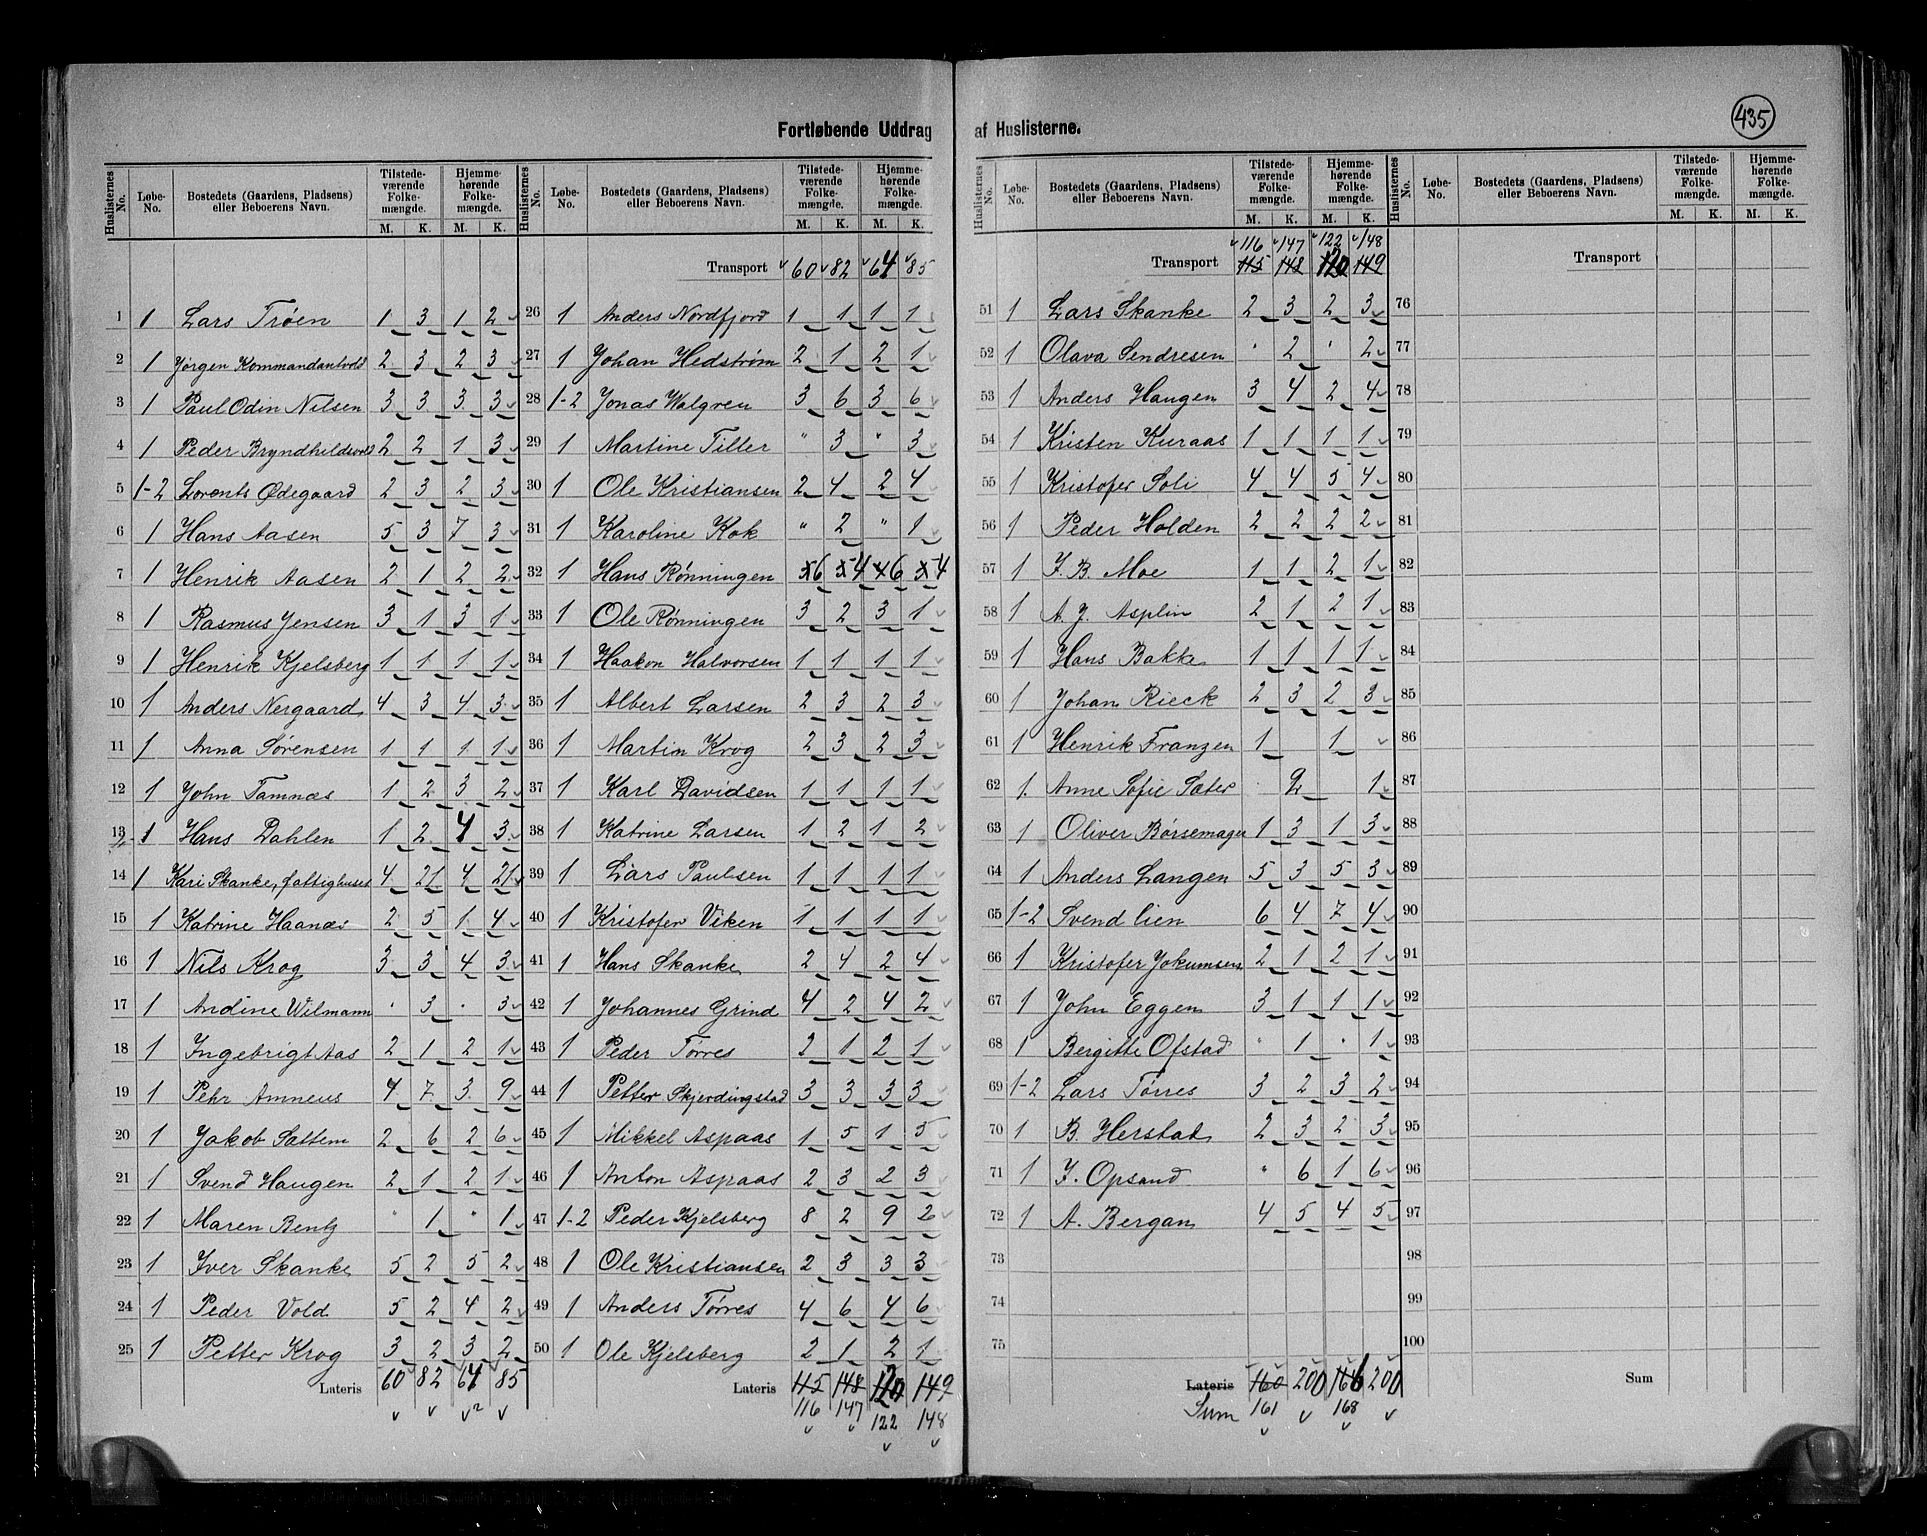 435
Fortløbende Uddrag af Huslisterne.
Huslisternes No. Løbe-No. Bostedets (Gaardens, Pladsens) eller Beboerens Navn. Tilstedeværende Folkemængde. M. K. Hjemmehørende Folkemængde. M. K.
1 1 Lars Trøen 1 3 1 2
2 1 Jørgen Kommandantvold 2 3 2 3
3 1 Paul Odin Nilsen 3 3 3 3
4 1 Peder Bryndhildsvold 2 2 1 3
5 1-2 Lorents Ødegaard 2 3 2 3
6 1 Hans Aasen 5 3 7 3
7 1 Henrik Aasen 2 1 2 2
8 1 Rasmus Jensen 3 1 3 1
9 1 Henrik Kjelsberg 1 1 1 1
10 1 Anders Nergaard 4 3 4 3
11 1 Anna Sørensen 1 1 1 1
12 1 John Tamnæs 1 2 3 2
13 1 Hans Dahlen 1 2 4 3
14 1 Kari Skanke, fattighuset 4 21 4 21
15 1 Katrine Haanæs 2 5 1 4
16 1 Nils Krog 3 3 4 3
17 1 Andine Wilmann · 3 · 3
18 1 Ingebrigt Aas 2 1 2 1
19 1 Pehr Amneus 4 7 3 9
20 1 Jakob Sattem 2 6 2 6
21 1 Svend Haugen 2 1 2 1
22 1 Maren Bentz " 1 " 1
23 1 Iver Skanke 5 2 5 2
24 1 Peder Vold 5 2 4 2
25 1 Petter Krog 3 2 3 2
Lateris 60 82 64 85
Huslisternes No. Løbe-No. Bostedets (Gaardens, Pladsens) eller Beboerens Navn. Tilstedeværende Folkemængde. M. K. Hjemmehørende Folkemængde. M. K.
Transport 60 82 64 85
26 1 Anders Nordfjord 1 1 1 1
27 1 Johan Hedstrøm 2 1 2 1
28 1-2 Jonas Walgren 3 6 3 6
29 1 Martine Tiller " 3 " 3
30 1 Ole Kristiansen 2 4 2 4
31 1 Karoline Kok " 2 " 1
32 1 Hans Rønningen 6 4 6 4
33 1 Ole Rønningen 3 2 3 1
34 1 Haakon Halvorsen 1 1 1 1
35 1 Albert Larsen 2 3 2 3
36 1 Martin Krog 2 3 2 3
37 1 Karl Davidsen 1 1 1 1
38 1 Katrine Larsen 1 2 1 2
39 1 Lars Paulsen 1 1 1 1
40 1 Kristofer Viken 1 1 1 1
41 1 Hans Skanke 2 4 2 4
42 1 Johannes Grind 4 2 4 2
43 1 Peder Tørres 2 1 2 1
44 1 Petter Skjerdingstad 3 3 3 3
45 1 Mikkel Aspaas 1 5 1 5
46 1 Anton Aspaas 2 3 2 3
47 1-2 Peder Kjelsberg 8 2 9 2
48 1 Ole Kristiansen 2 3 3 3
49 1 Anders Tørres 4 6 4 6
50 1 Ole Kjelsberg 2 1 2 1
Lateris 115 148 120 149
116 147 122 148
Huslisternes No. Løbe-No. Bostedets (Gaardens, Pladsens) eller Beboerens Navn. Tilstedeværende Folkemængde. M. K. Hjemmehørende Folkemængde. M. K.
116 147 122 148
Transport 115 148 120 149
51 1 Lars Skanke 2 3 2 3
52 1 Olava Sendresen · 2 · 2
53 1 Anders Haugen 3 4 2 4
54 1 Kristen Kuraas 1 1 1 1
55 1 Kristofer Soli 4 4 5 4
56 1 Peder Holden 2 2 2 2
57 1 J. B. Moe 1 1 2 1
58 1 A. J. Asplin 2 1 2 1
59 1 Hans Bakke 1 1 1 1
60 1 Johan Rieck 2 3 2 3
61 1 Henrik Franzen 1 1
62 1. Anne Sofie Sater 2 1
63 1 Oliver Børsemager 1 3 1 3
64 1 Anders Langen 5 3 5 3
65 1-2 Svend Lien 6 4 7 4
66 1 Kristofer Jokumsen 2 1 2 1
67 1 John Eggen 3 1 1 1
68 1 Bergitte Ofstad " 1 · 1
69 1-2 Lars Tørres 3 2 3 2
70 1 B. Herstad 2 3 2 3
71 1 J. Opsand " 6 1 6
72 1 A. Bergan 4 5 4 5
73
74
75
Lateris 160 200 166 200
Sum 161 168
Huslisternes No. Løbe-No. Bostedets (Gaardens, Pladsens) eller Beboerens Navn. Tilstedeværende Folkemængde. M. K. Hjemmehørende Folkemængde. M. K.
Transport
76
77
78
79
80
81
82
83
84
85
86
87
88
89
90
91
92
93
94
95
96
97
98
99
100
Sum